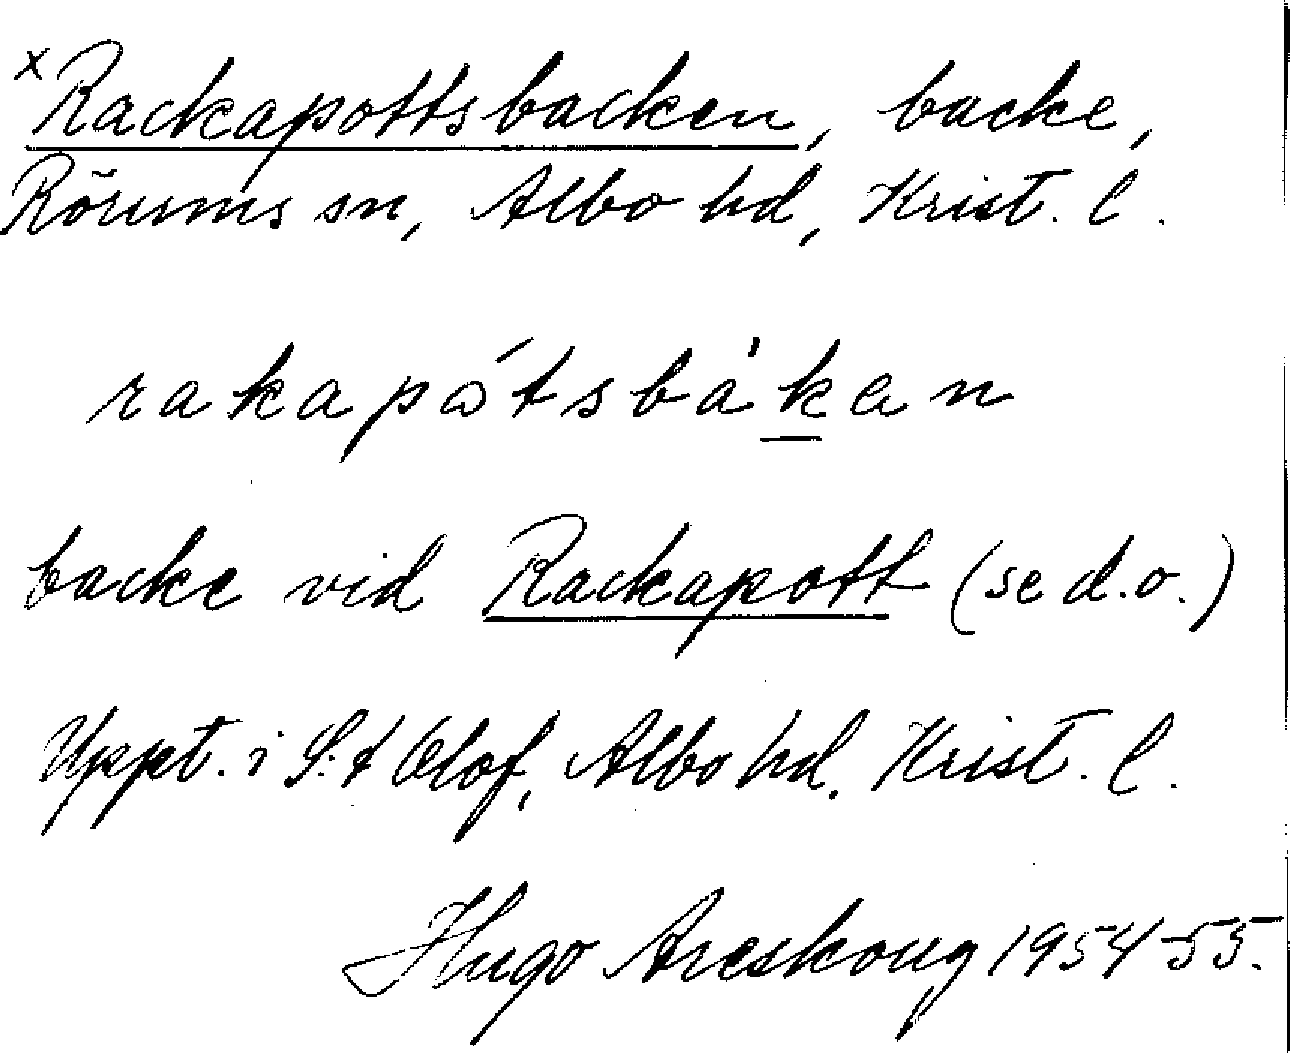 x Rackapottsbacken, backe,
Rörums sn, Albo hd, Krist. l.
rakapåtsbákan
backe vid Rackapott (se d.o.)
Uppt. i S:t Olof, Albo hd. Krist. l.
Hugo Areskoug 1954-55.